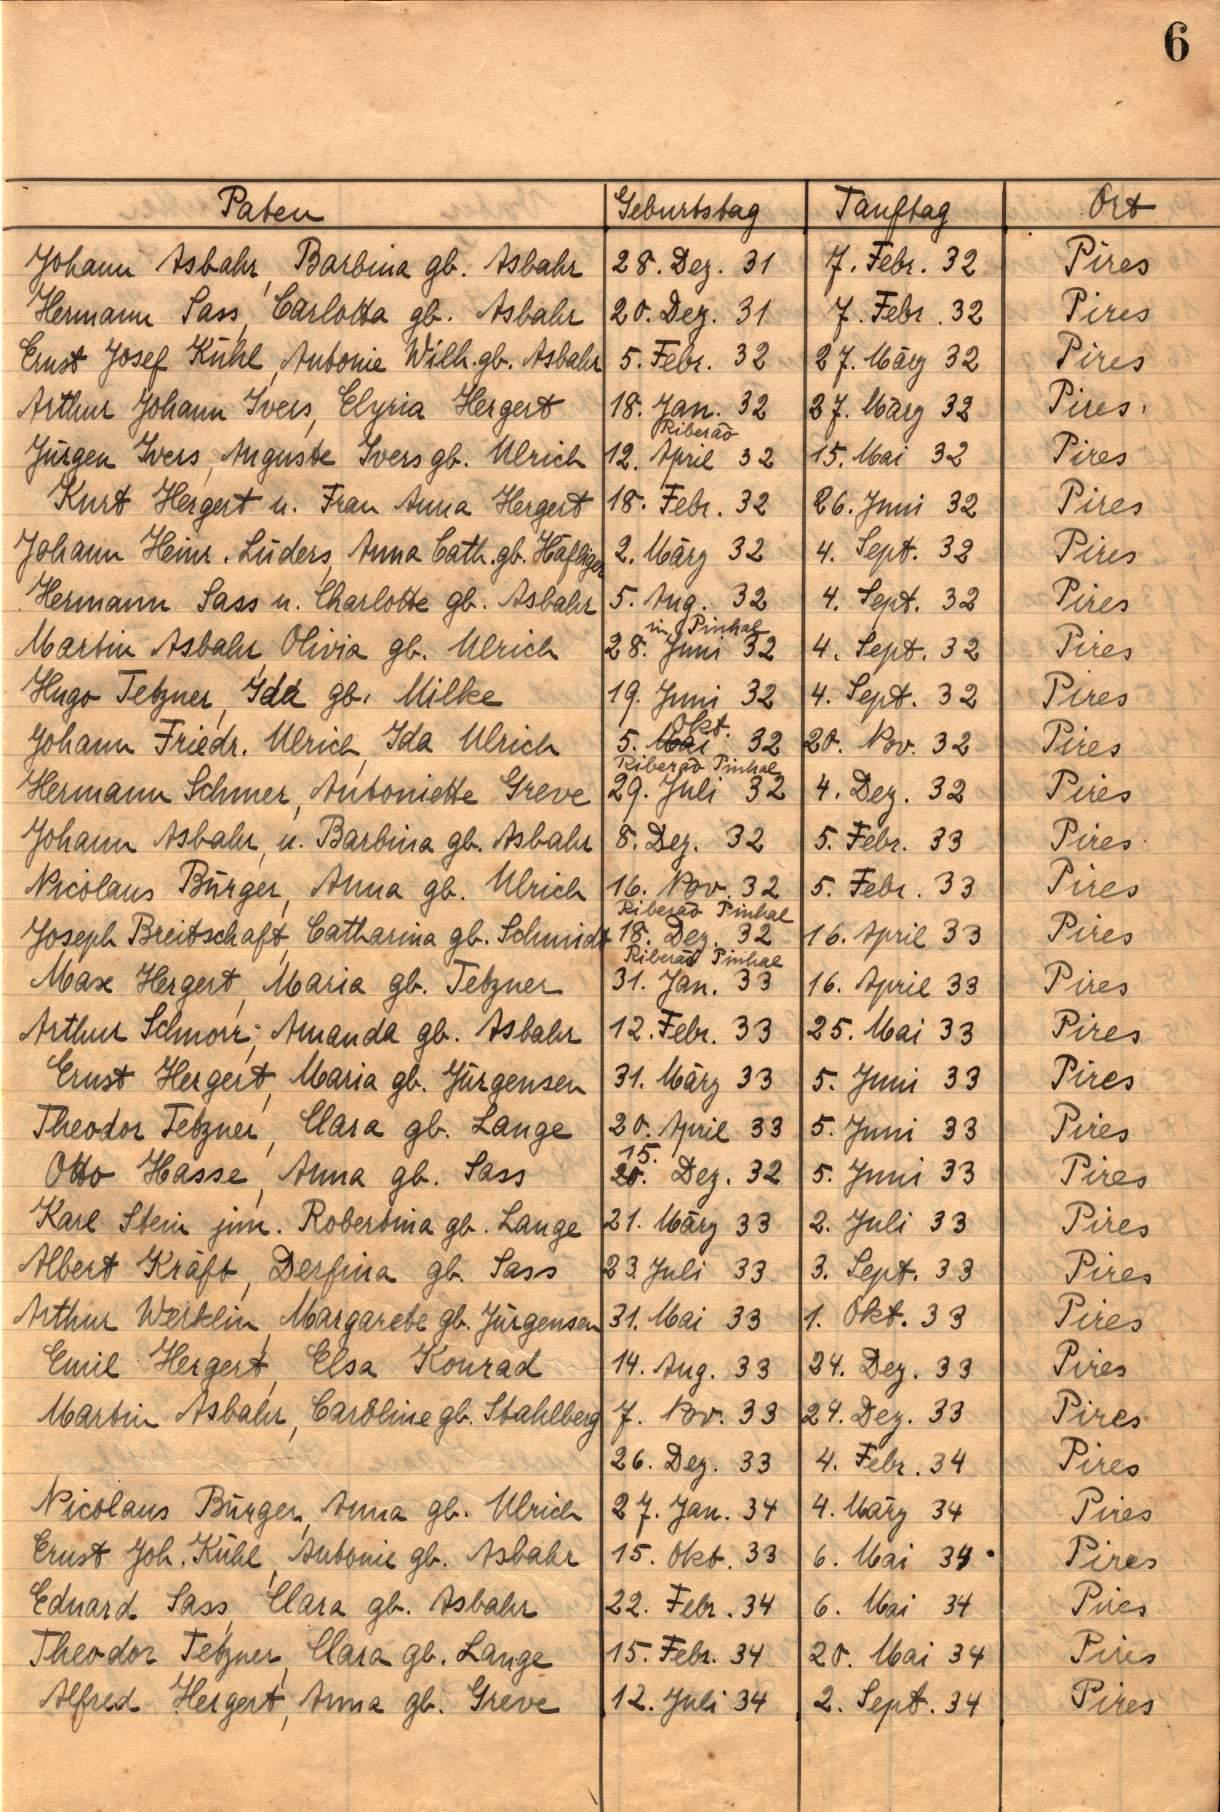 6
Paten Geburtstag Tauftag Ort
Johann Asbahr, Barbina gb. Asbahr 28. Dez. 31 7. Febr. 32 Pires
Hermann Sass, Carlotta gb. Asbahr 20. Dez. 31 7. Febr. 32 Pires
Ernst Josef Kühl, Antonie Wilh. gb. Asbahr 5. Febr. 32 27. März 32 Pires
Arthur Johann Ivers, Elyria Hergert 18. Jan. 32 27. März 32 Pires.
Riberão
Jürgen Ivers, Auguste Ivers gb. Ulrich 12. April 32 15. Mai 32 Pires
Kurt Hergert u. Frau Anna Hergert 18. Febr. 32 26. Juni 32 Pires
Johann Heinr. Lüders, Anna Cath. gb. Häfliger 2. März 32 4. Sept. 32 Pires
Hermann Sass u. Charlotte gb. Asbahr 5. Aug. 32 4. Sept. 32 Pires
in Pinhal
Martin Asbahr, Olivia gb. Ulrich 28. Juni 32 4. Sept. 32 Pires
Hugo Tetzner, Ida gb. Milke 19. Juni 32 4. Sept. 32 Pires
Okt.
Johann Friedr. Ulrich, Ida Ulrich 5. Mai 32 20. Nov. 32 Pires
Riberão Pinhal
Hermann Schnier, Antoniette Greve 29. Juli 32 4. Dez. 32 Pires
Johann Asbahr, u. Barbina gb. Asbahr 8. Dez. 32 5. Febr. 33 Pires
Nicolaus Bürger, Anna gb. Ulrich 16. Nov. 32 5. Febr. 33 Pires
Riberão Pinhal
Joseph Breitschaft, Catharina gb. Schmidt 18. Dez. 32 16. April 33 Pires
Riberão Pinhal
Max Hergert, Maria gb. Tetzner 31. Jan. 33 16. April 33 Pires
Arthur Schnorr, Amanda gb. Asbahr 12. Febr. 33 25. Mai 33 Pires
Ernst Hergert, Maria gb. Jürgensen 31. März 33 5. Juni 33 Pires
Theodor Tetzner, Clara gb. Lange 20. April 33 5. Juni 33 Pires
15.
Otto Hasse, Anna gb. Sass 20. Dez. 32 5. Juni 33 Pires
Karl Stein jun. Robertina gb. Lange 21. März 33 2. Juli 33 Pires
Albert Kräft, Derfina gb. Sass 23. Juli 33 3. Sept. 33 Pires
Arthur Werklin, Margarete gb. Jürgensen 31. Mai 33 1. Okt. 33 Pires
Emil Hergert, Elsa Konrad 14. Aug. 33 24. Dez. 33 Pires
Martin Asbahr, Caroline gb. Stahlberg 7. Nov. 33 24. Dez. 33 Pires
26. Dez. 33 4. Febr. 34 Pires
Nicolaus Bürger, Anna gb. Ulrich 27. Jan. 34 4. März 34 Pires
Ernst Joh. Kühl, Antonie gb. Asbahr 15. Okt. 33 6. Mai 34 Pires
Eduard Sass, Clara gb. Asbahr 22. Febr. 34 6. Mai 34 Pires
Theodor Tetzner, Clara gb. Lange 15. Febr. 34 20. Mai 34 Pires
Alfred Hergert, Anna gb. Greve 12. Juli 34 2. Sept. 34 Pires